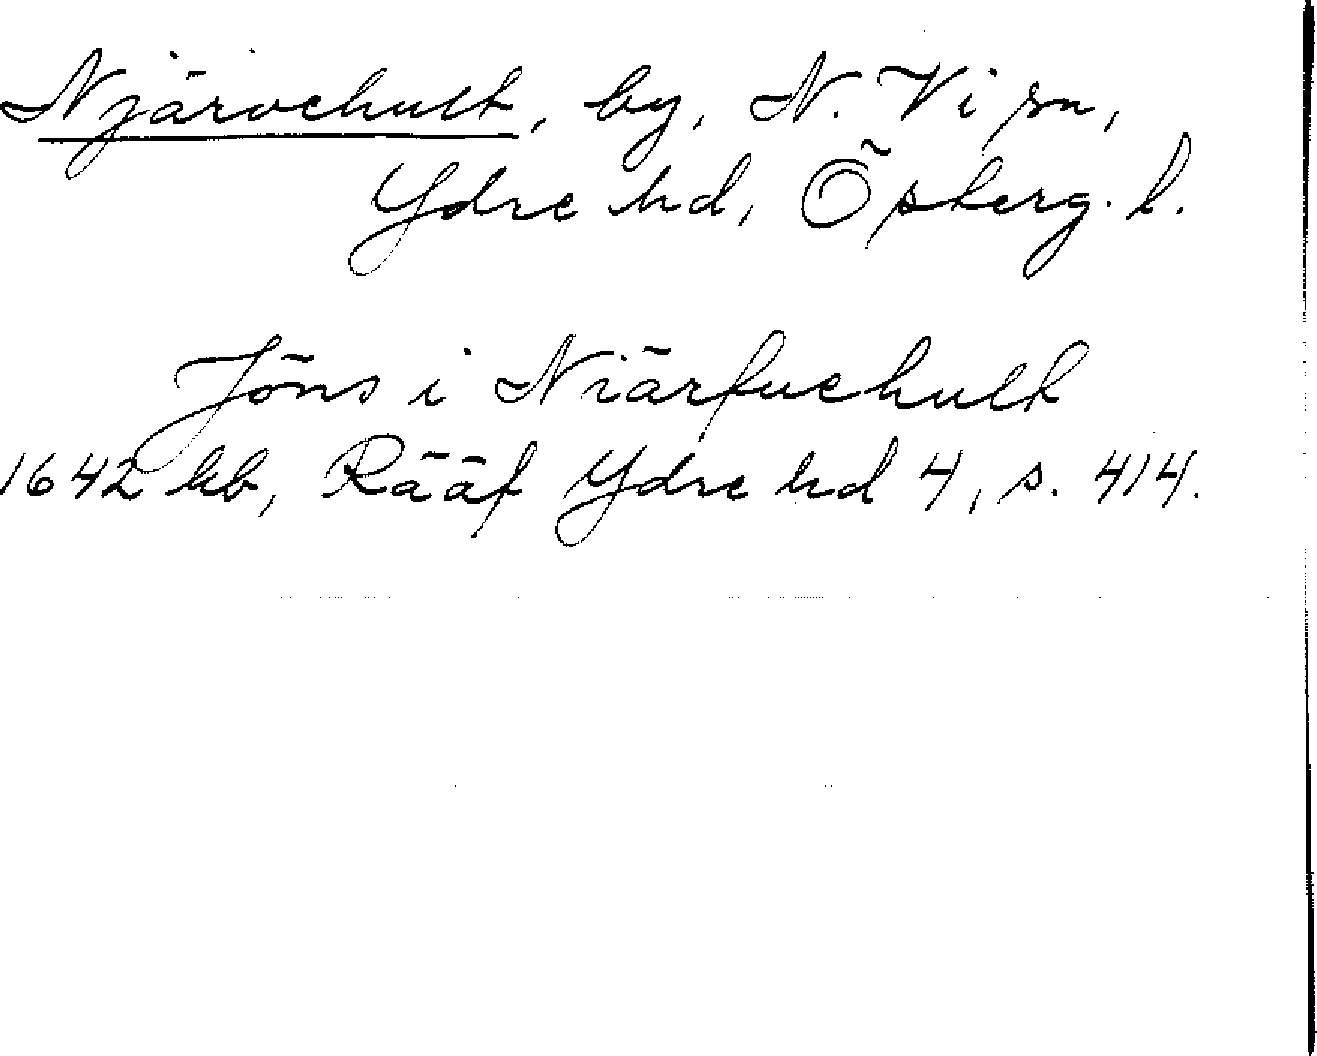 Njärvehult, by, N. Vi sn,
Ydre hd, Östergl.
Jöns i Niärfuehult
1642 kb, Rääf Ydre hd 4, s. 414.